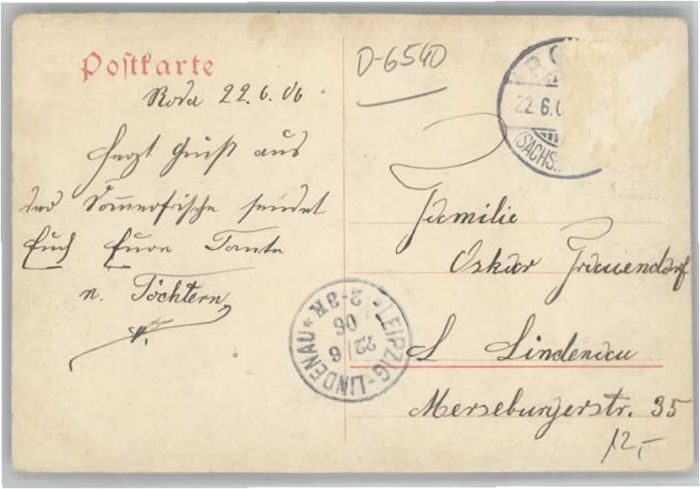 Postkarte
Roda 22.6.06
Herzl Gruß aus
der Sommerfrische sendet
Euch Eure Tante
u. Töchtern
D-6540
22.6.0
(SACHS.
Familie
Oskar Frauendorf
L Lindenau
Merseburgerstr. 35
12,-
LEIPZIG-LINDENAU
22/6
06
2-3N